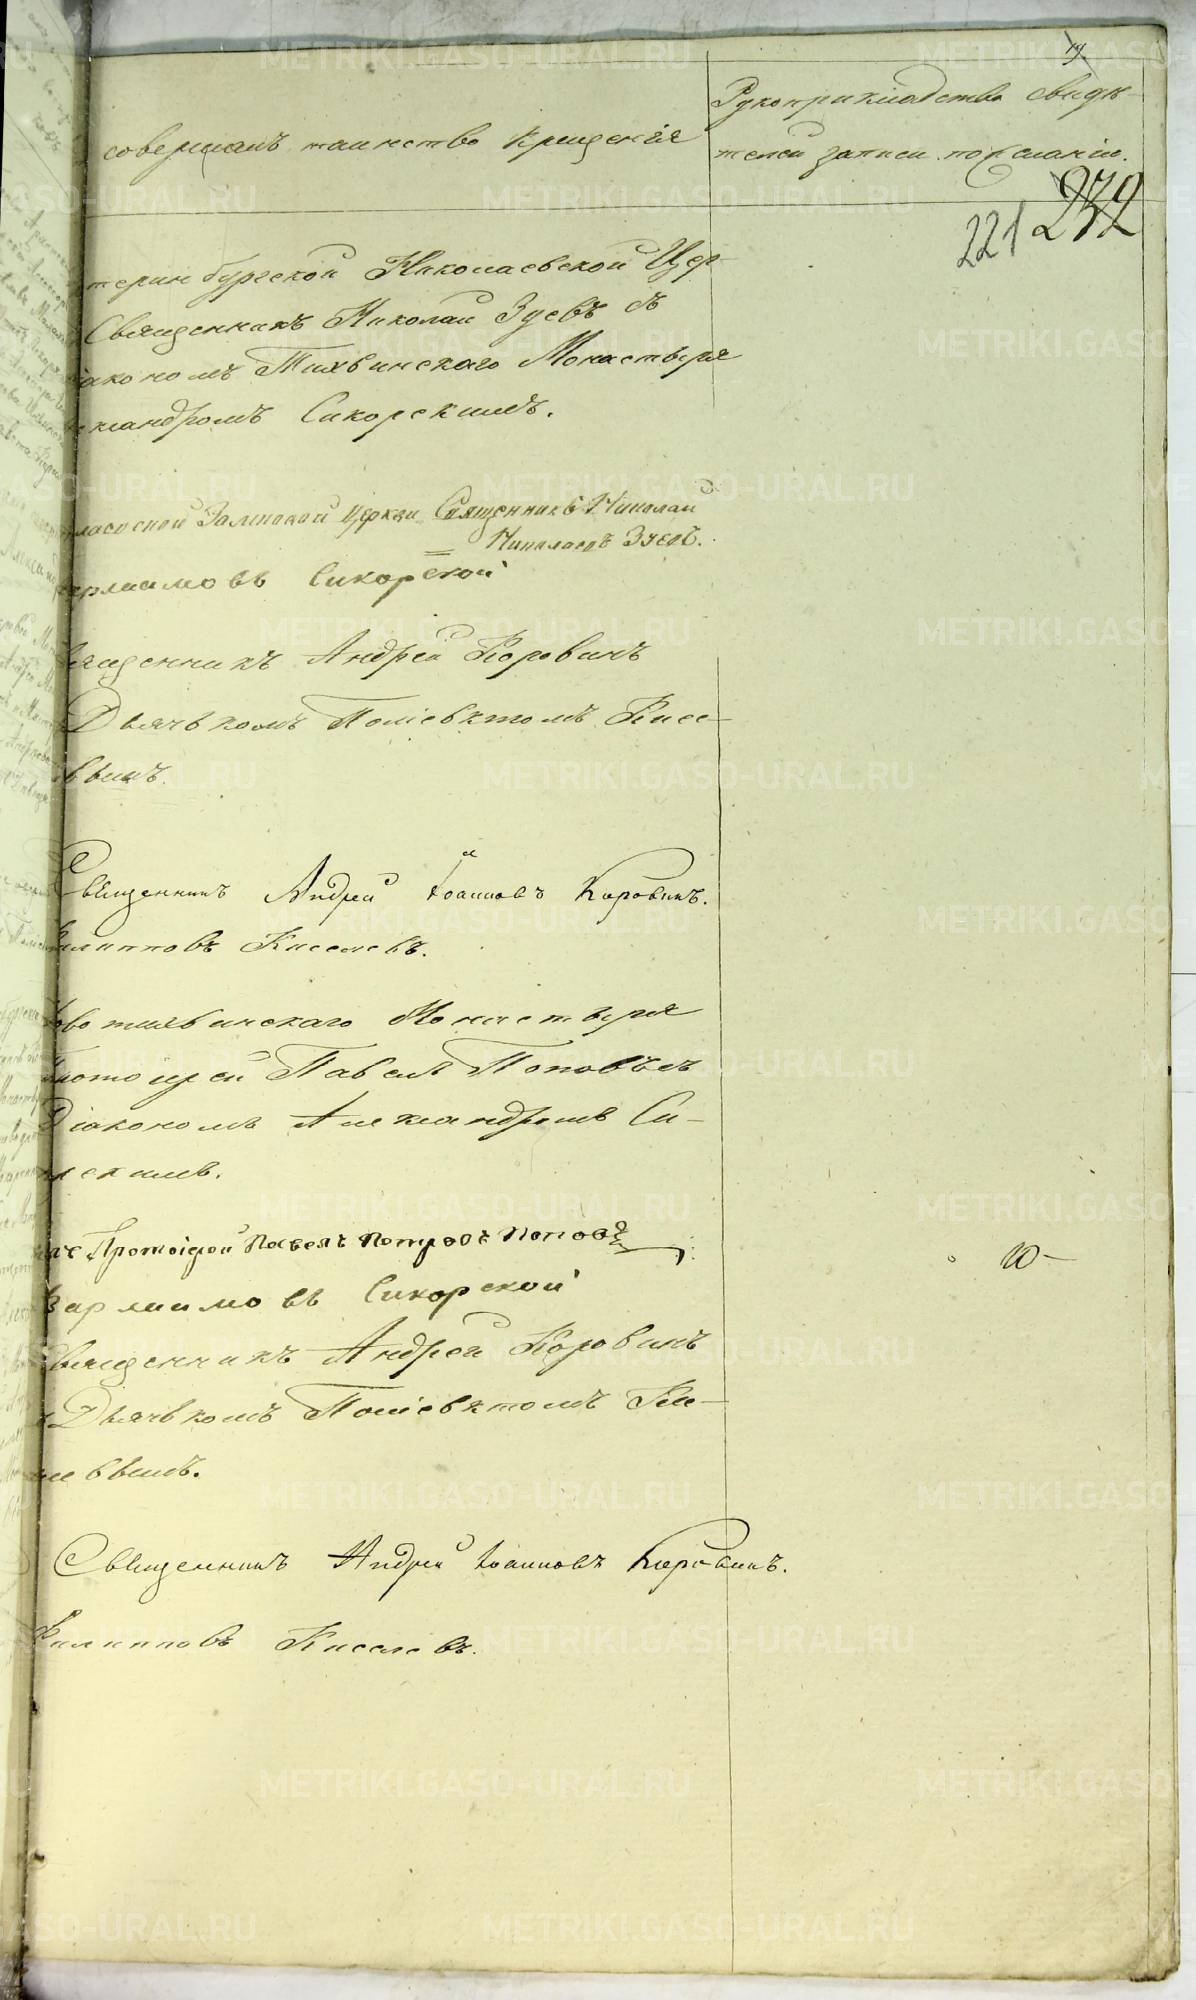 19
совершалъ таинство крещенія
Рукоприкладство свидѣ-
телей записи по желанію.
221 232
теринбургской Николаевской Цер-
Священникъ Николай Зуевъ съ
іакономъ Тихвинскаго Монастыря
ксандромъ Сикорскимъ.
гласосной Церкви Священникъ Николай
Николаевъ Зуевъ.
арлаамовъ Сикорской
вященникъ Андрей Коровинъ
Дьячкомъ Поліевктомъ Кисе-
евымъ.
Священникъ Андрей Іоанновъ Коровинъ.
Филипповъ Киселевъ.
овотихвинскаго Монастыря
ротоіерей Павелъ Поповъ съ
Діакономъ Александромъ Си-
рскимъ.
Протоіерей Павелъ Петровъ Поповъ
Варлаамовъ Сикорской
10-
Священникъ Андрей Коровинъ
Дьячкомъ Поліевктомъ Ки-
левымъ.
Священникъ Андрей Іоанновъ Коровинъ.
Филипповъ Киселевъ.
METRIKI.GASO-URAL.RU